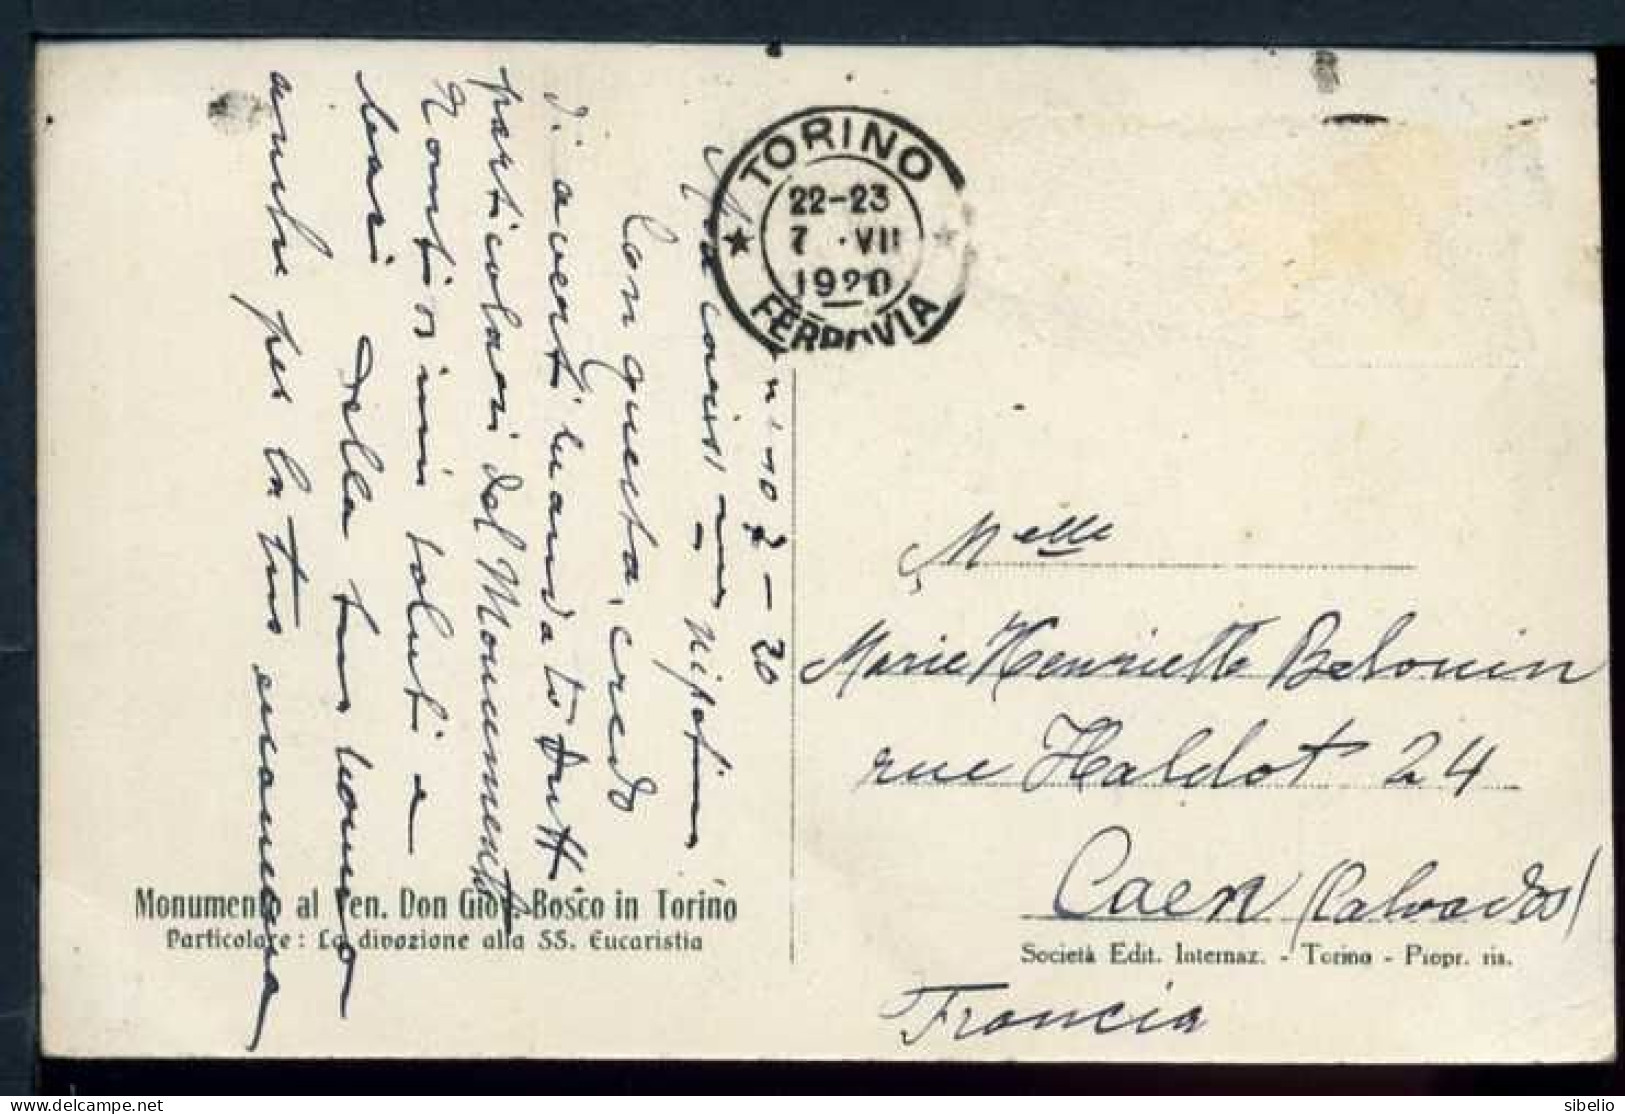 TORINO
22-23
7 · VII
1920
FERROVIA
Torino 7 - 20
Mia cariss nipotina
Con questa, credo
di averti mandato tutti
particolari del Monumento
Tanti miei saluti e
baci della tua nonna
anche per la tua mamma
Monumento al Ven. Don Giov. Bosco in Torino
Particolare: La divozione alla SS. Eucaristia
Melle
Marie Henriette Belouin
rue Haldot 24
Caen (Calvados)
Società Edit. Internaz. - Torino - Propr. ris.
Francia
sibelio